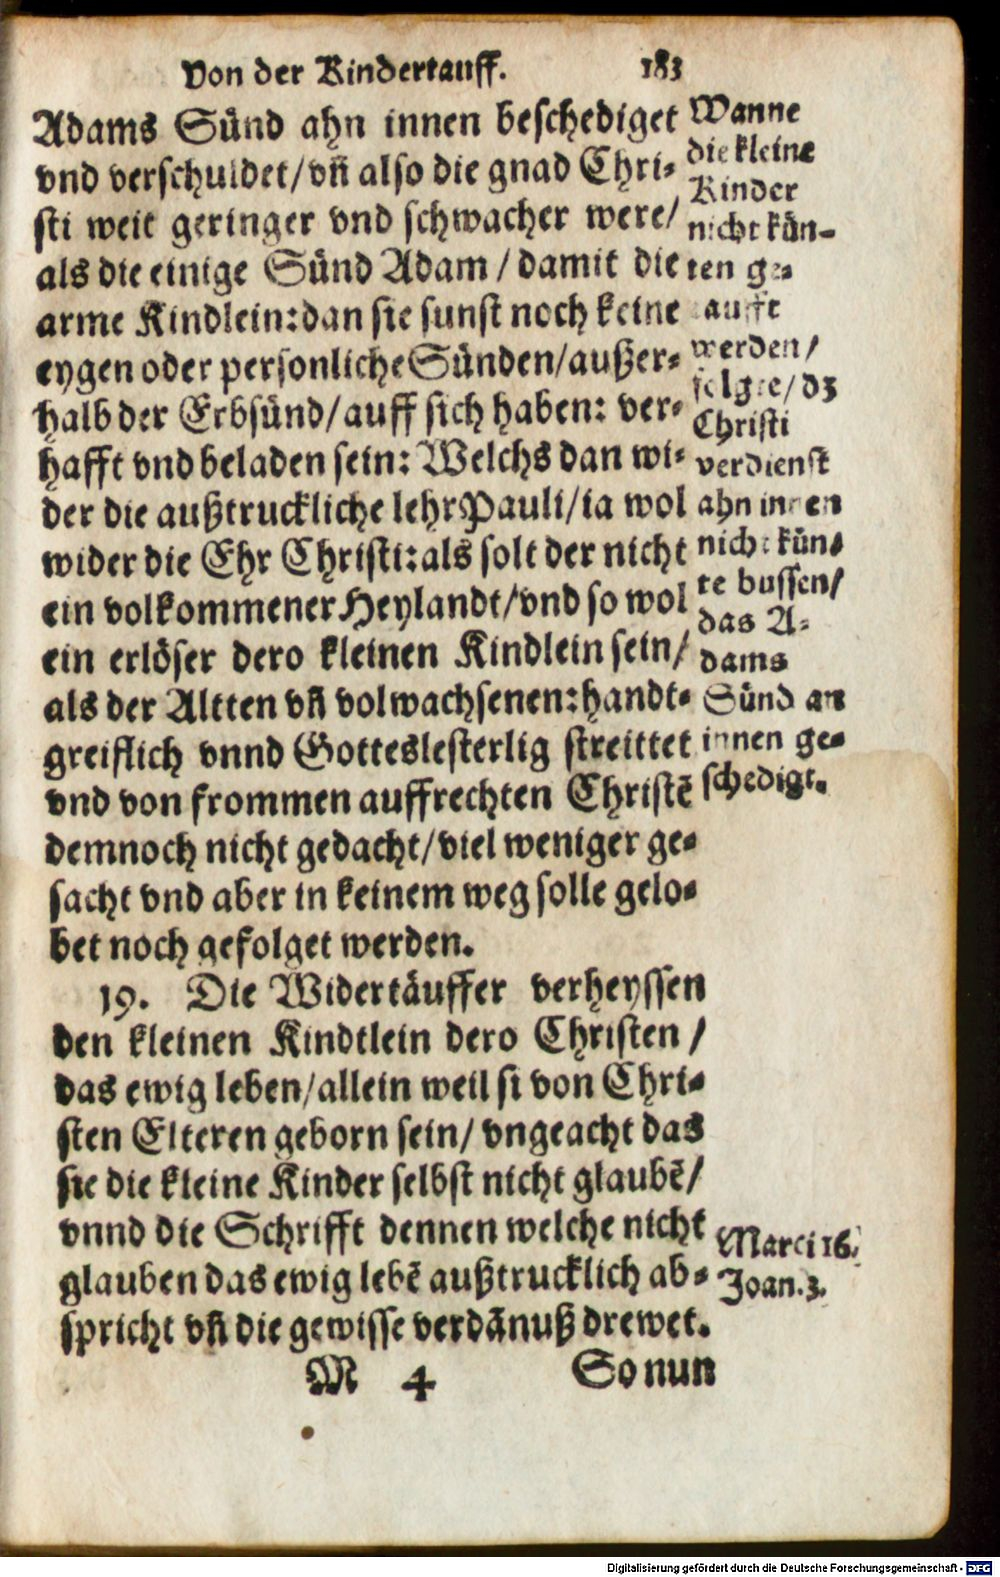 Von der Kindertauff. 183
Adams Sünd ahn innen beschediget
vnd verschuldet/vñ also die gnad Chri-
sti weit geringer vnd schwacher were/
als die einige Sünd Adam/damit die
arme Kindlein:dan sie sunst noch keine
eygen oder personliche Sünden/außer-
halb der Erbsünd/auff sich haben: ver-
hafft vnd beladen sein: Welchs dan wi-
der die außtruckliche lehr Pauli/ia wol
wider die Ehr Christi:als solt der nicht
ein volkommener Heylandt/vnd so wol
ein erlöser dero kleinen Kindlein sein/
als der Altten vñ volwachsenen:handt-
greiflich vnnd Gotteslesterlig streittet
vnd von frommen auffrechten Christē
demnoch nicht gedacht/viel weniger ge-
sacht vnd aber in keinem weg solle gelo-
bet noch gefolget werden.
19. Die Widertäuffer verheyssen
den kleinen Kindtlein dero Christen/
das ewig leben/allein weil si von Chri-
sten Elteren geborn sein/ vngeacht das
sie die kleine Kinder selbst nicht glaubē/
vnnd die Schrifft dennen welche nicht
glauben das ewig lebē außtrucklich ab-
spricht vñ die gewisse verdānuß drewet.
M 4 So nun
Wanne
die kleine
Kinder
nicht kün-
ten ge-
taufft
werden/
folgte/dz
Christi
verdienst
ahn innen
nicht kün-
te bussen/
das A-
dams
Sünd an
innen ge-
schedigt.
Marci 16.
Joan.3.
Digitalisierung gefördert durch die Deutsche Forschungsgemeinschaft - DFG